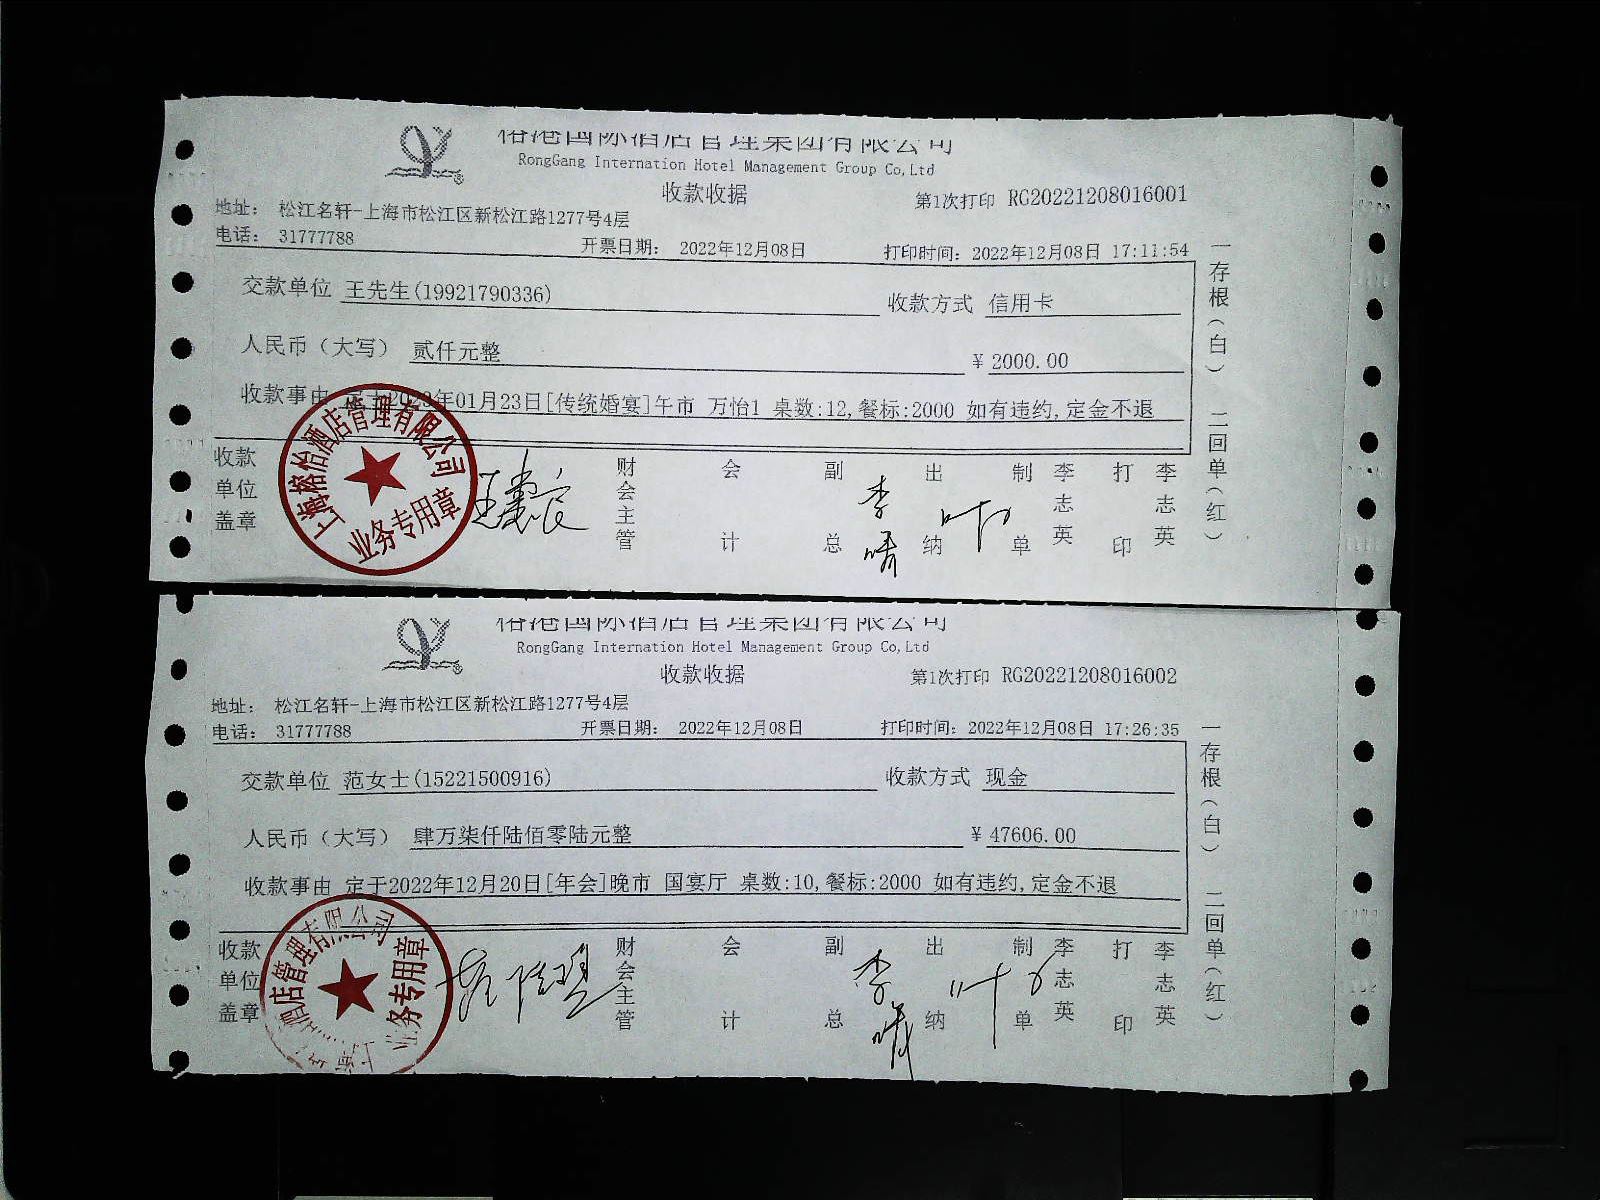 榕港国际酒店管理集团有限公司
RongGang Internation Hotel Management Group Co,Ltd
收款收据
第1次打印 RG20221208016001
地址: 松江名轩-上海市松江区新松江路1277号4层
电话: 31777788 开票日期: 2022年12月08日 打印时间: 2022年12月08日 17:11:54
交款单位 王先生(19921790336) 收款方式 信用卡
人民币（大写） 贰仟元整 ¥ 2000.00
收款事由 定于2023年01月23日[传统婚宴]午市 万怡1 桌数:12,餐标:2000 如有违约,定金不退
收款单位盖章 财会主管 会计 副总 出纳 制单 李志英 打印 李志英
上海榕怡酒店管理有限公司
业务专用章
一存根(白) 二回单(红)
榕港国际酒店管理集团有限公司
RongGang Internation Hotel Management Group Co,Ltd
收款收据
第1次打印 RG20221208016002
地址: 松江名轩-上海市松江区新松江路1277号4层
电话: 31777788 开票日期: 2022年12月08日 打印时间: 2022年12月08日 17:26:35
交款单位 范女士(15221500916) 收款方式 现金
人民币（大写） 肆万柒仟陆佰零陆元整 ¥ 47606.00
收款事由 定于2022年12月20日[年会]晚市 国宴厅 桌数:10,餐标:2000 如有违约,定金不退
收款单位盖章 财会主管 会计 副总 出纳 制单 李志英 打印 李志英
酒店管理有限公司
业务专用章
一存根(白) 二回单(红)